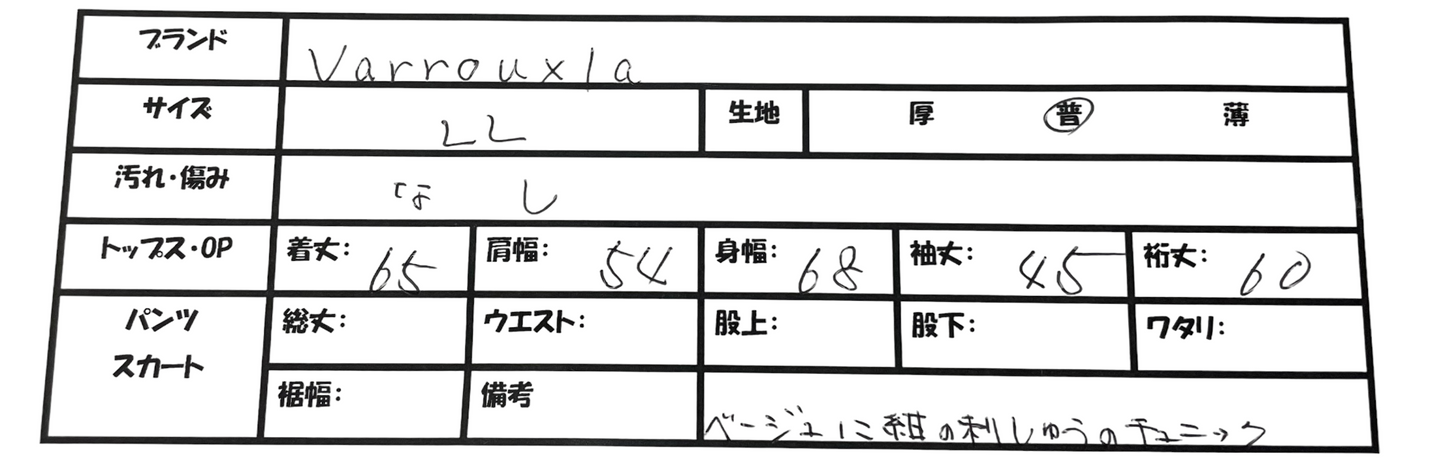 ブランド Varrouxla
サイズ LL 生地 厚 普 薄
汚れ・傷み なし
トップス・OP 着丈: 65 肩幅: 54 身幅: 68 袖丈: 45 裄丈: 60
パンツ スカート 総丈: ウエスト: 股上: 股下: ワタリ:
裾幅: 備考 ベージュに紺の刺しゅうのチュニック